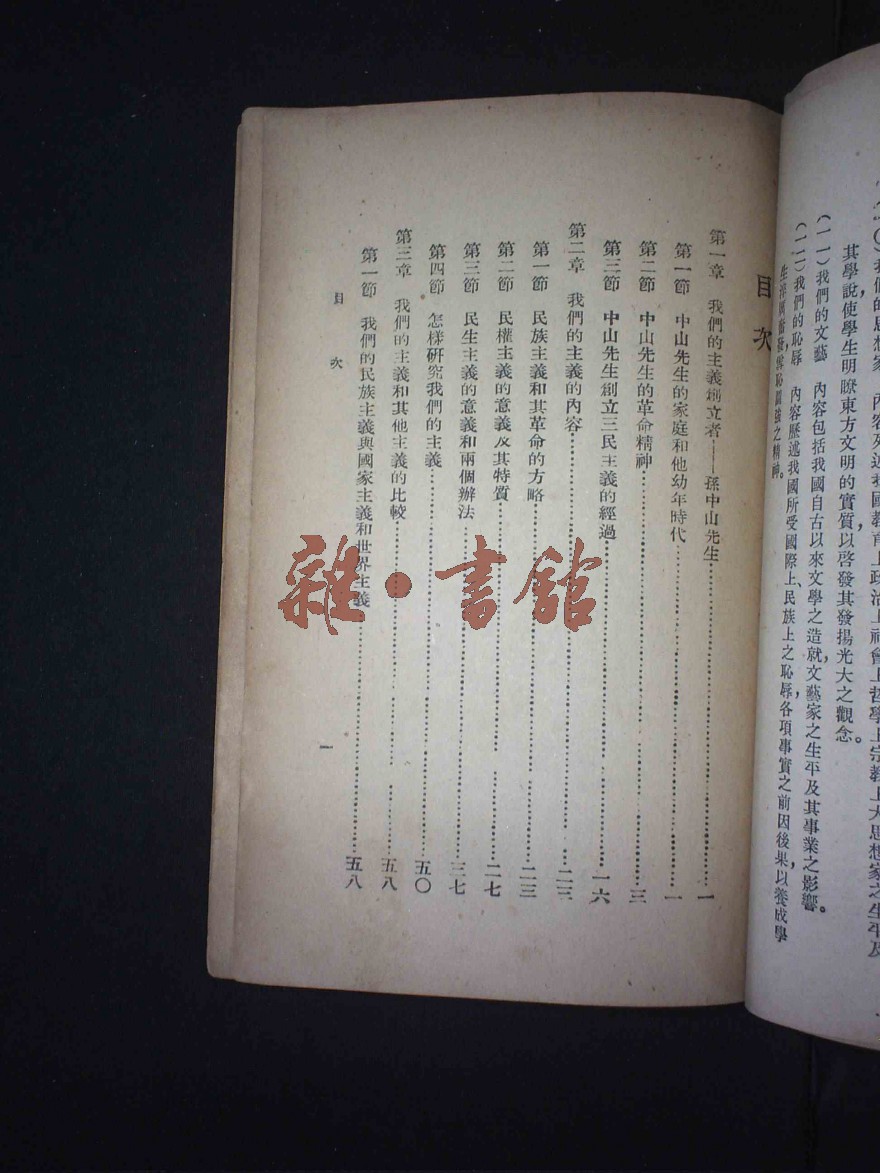 我們的思想家 內容列述我國教育上政治上社會上哲學上宗教上大思想家之生平及
其學說使學生明瞭東方文明的實質以啓發其發揚光大之觀念。
(一一)我們的文藝 內容包括我國自古以來文學之造就文藝家之生平及其事業之影響。
(一二)我們的恥辱 內容歷述我國所受國際上民族上之恥辱各項事實之前因後果,以養成學
之精神。
目次
第一章 我們的主義創立者——孫中山先生……一
第一節 中山先生的家庭和他幼年時代……一
第二節 中山先生的革命精神……三
第三節 中山先生創立三民主義的經過……一六
第二章 我們的主義的內容……二三
第一節 民族主義和其革命的方略……二三
第二節 民權主義的意義及其特質……二七
第三節 民生主義的意義和兩個辦法……三七
第四節 怎樣研究我們的主義……五〇
第三章 我們的主義和其他主義的比較……五八
第一節 我們的民族主義與國家主義和世界主義……五八
目次
一
雜·書館